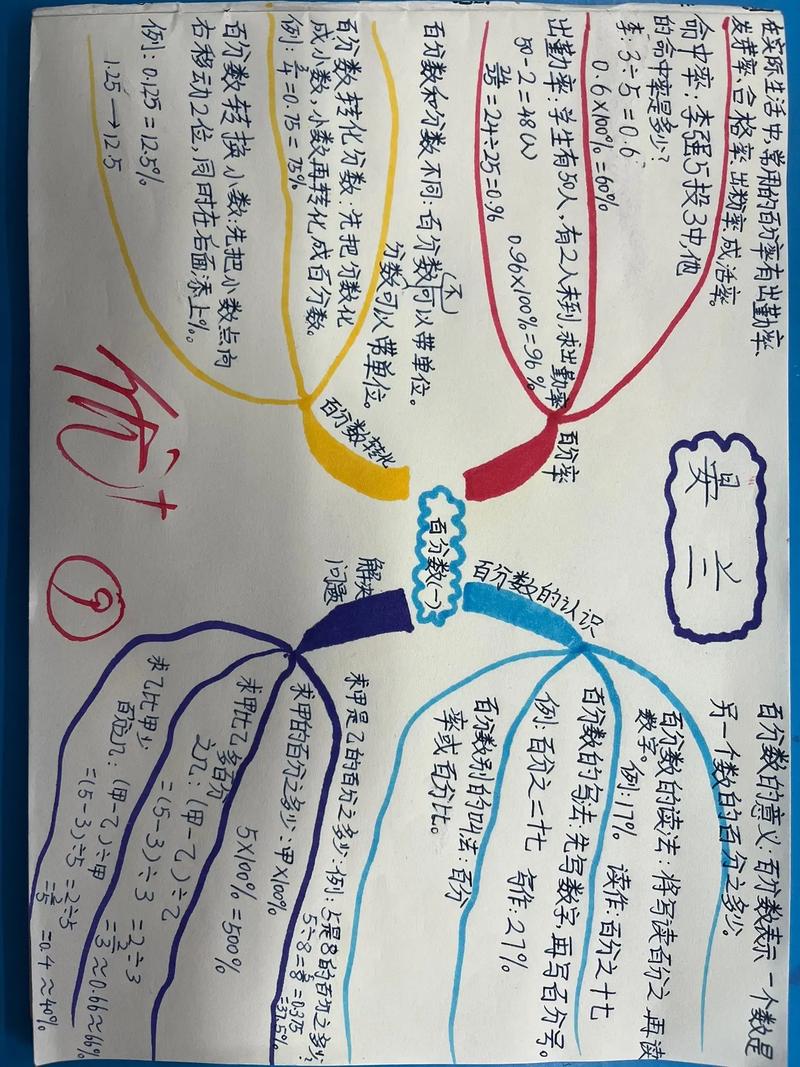 昙兰
百分数(一)
百分率
在实际生活中,常用的百分率有出勤率、
发芽率、合格率、出勤率、成活率。
命中率:李强5投3中,他
的命中率是多少?
李:3÷5=0.6
0.6×100%=60%
出勤率:学生有50人,有2人未到,求出勤率
50-2=48(人)
=24÷25=0.96
0.96×100%=96%
百分数的认识
百分数的意义:百分数表示一个数是
另一个数的百分之多少。
百分数的读法:将写读百分之,再读
数字。
例:17% 读作:百分之十七
百分数的写法:先写数字,再写百分号。
例:百分之二十七 写作:27%
百分数别的叫法:百分
率或百分比。
百分数转化
百分数和分数不同:百分数(不)可以带单位。
分数可以带单位。
百分数转化分数:先把分数化
成小数,小数再转化成百分数。
例:3/4=0.75=75%
百分数转换小数:先把小数点向
右移动2位,同时在后面添上%。
例:0.125=12.5%
1.25→12.5
解决
问题
求甲是乙的百分之多少:例:5是8的百分之多少?
5÷8=5/8=0.375
=37.5%
求甲的百分之多少:甲×100%
5×100%=500%
求甲比乙多百分
之几:(甲-乙)÷乙
=(5-3)÷3
=2÷3
=2/3≈0.66≈66%
求乙比甲少
百分之几:(甲-乙)÷甲
=(5-3)÷5
=2÷5
=2/5
=0.4≈40%
优+